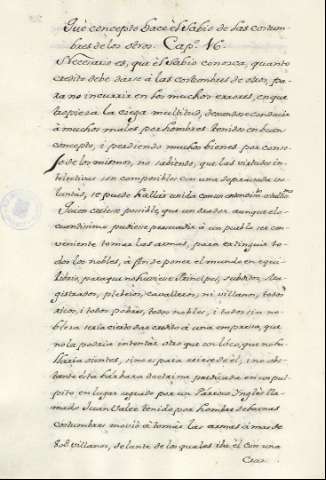 Què concepto hace el Sabio de las costum-
bres de los otros. Cap. 16.
Necesario es, que el Sabio conosca, quanto
credito debe darse à las costumbres de otros, pa-
ra no incurrir en los muchos errores, en que
tropiesa la ciega multitud, dexandose
à muchos males por hombres tenidos en buen
concepto, i perdiendo muchos bienes por
de los mismos, no sabiendo, que las virtudes in-
telectivas son componibles con una depravada vo-
luntad, i se puede hallar unida con
Quien creiera possible, que un orador aunque elo-
quentissimo pudiese persuadir à un pueblo ser con-
veniente tomar las armas, para extinguir to-
dos los nobles, à fin de poner el mundo en equi-
librio, para que no huviese Principes, subditos, Ma-
gistrados, plebeios, cavalleros, ni villanos, todos
ricos, i todos pobres, todos nobles, i todos sin no-
bleza seria cierto dar credito à una empresa, que
no la podria intentar otro que un loco, que no ha-
llaria oientes, sino es para reirse de el, i no obs-
tante esta bárbara doctrina predicada en un pul-
pito, en lugar sagrado por un Parroco Ingles lla-
mado Juan Valee tenido por hombre de buenas
costumbres moviò à tomar las armas à mas de
villanos, delante de los quales iba el con una
Cruz